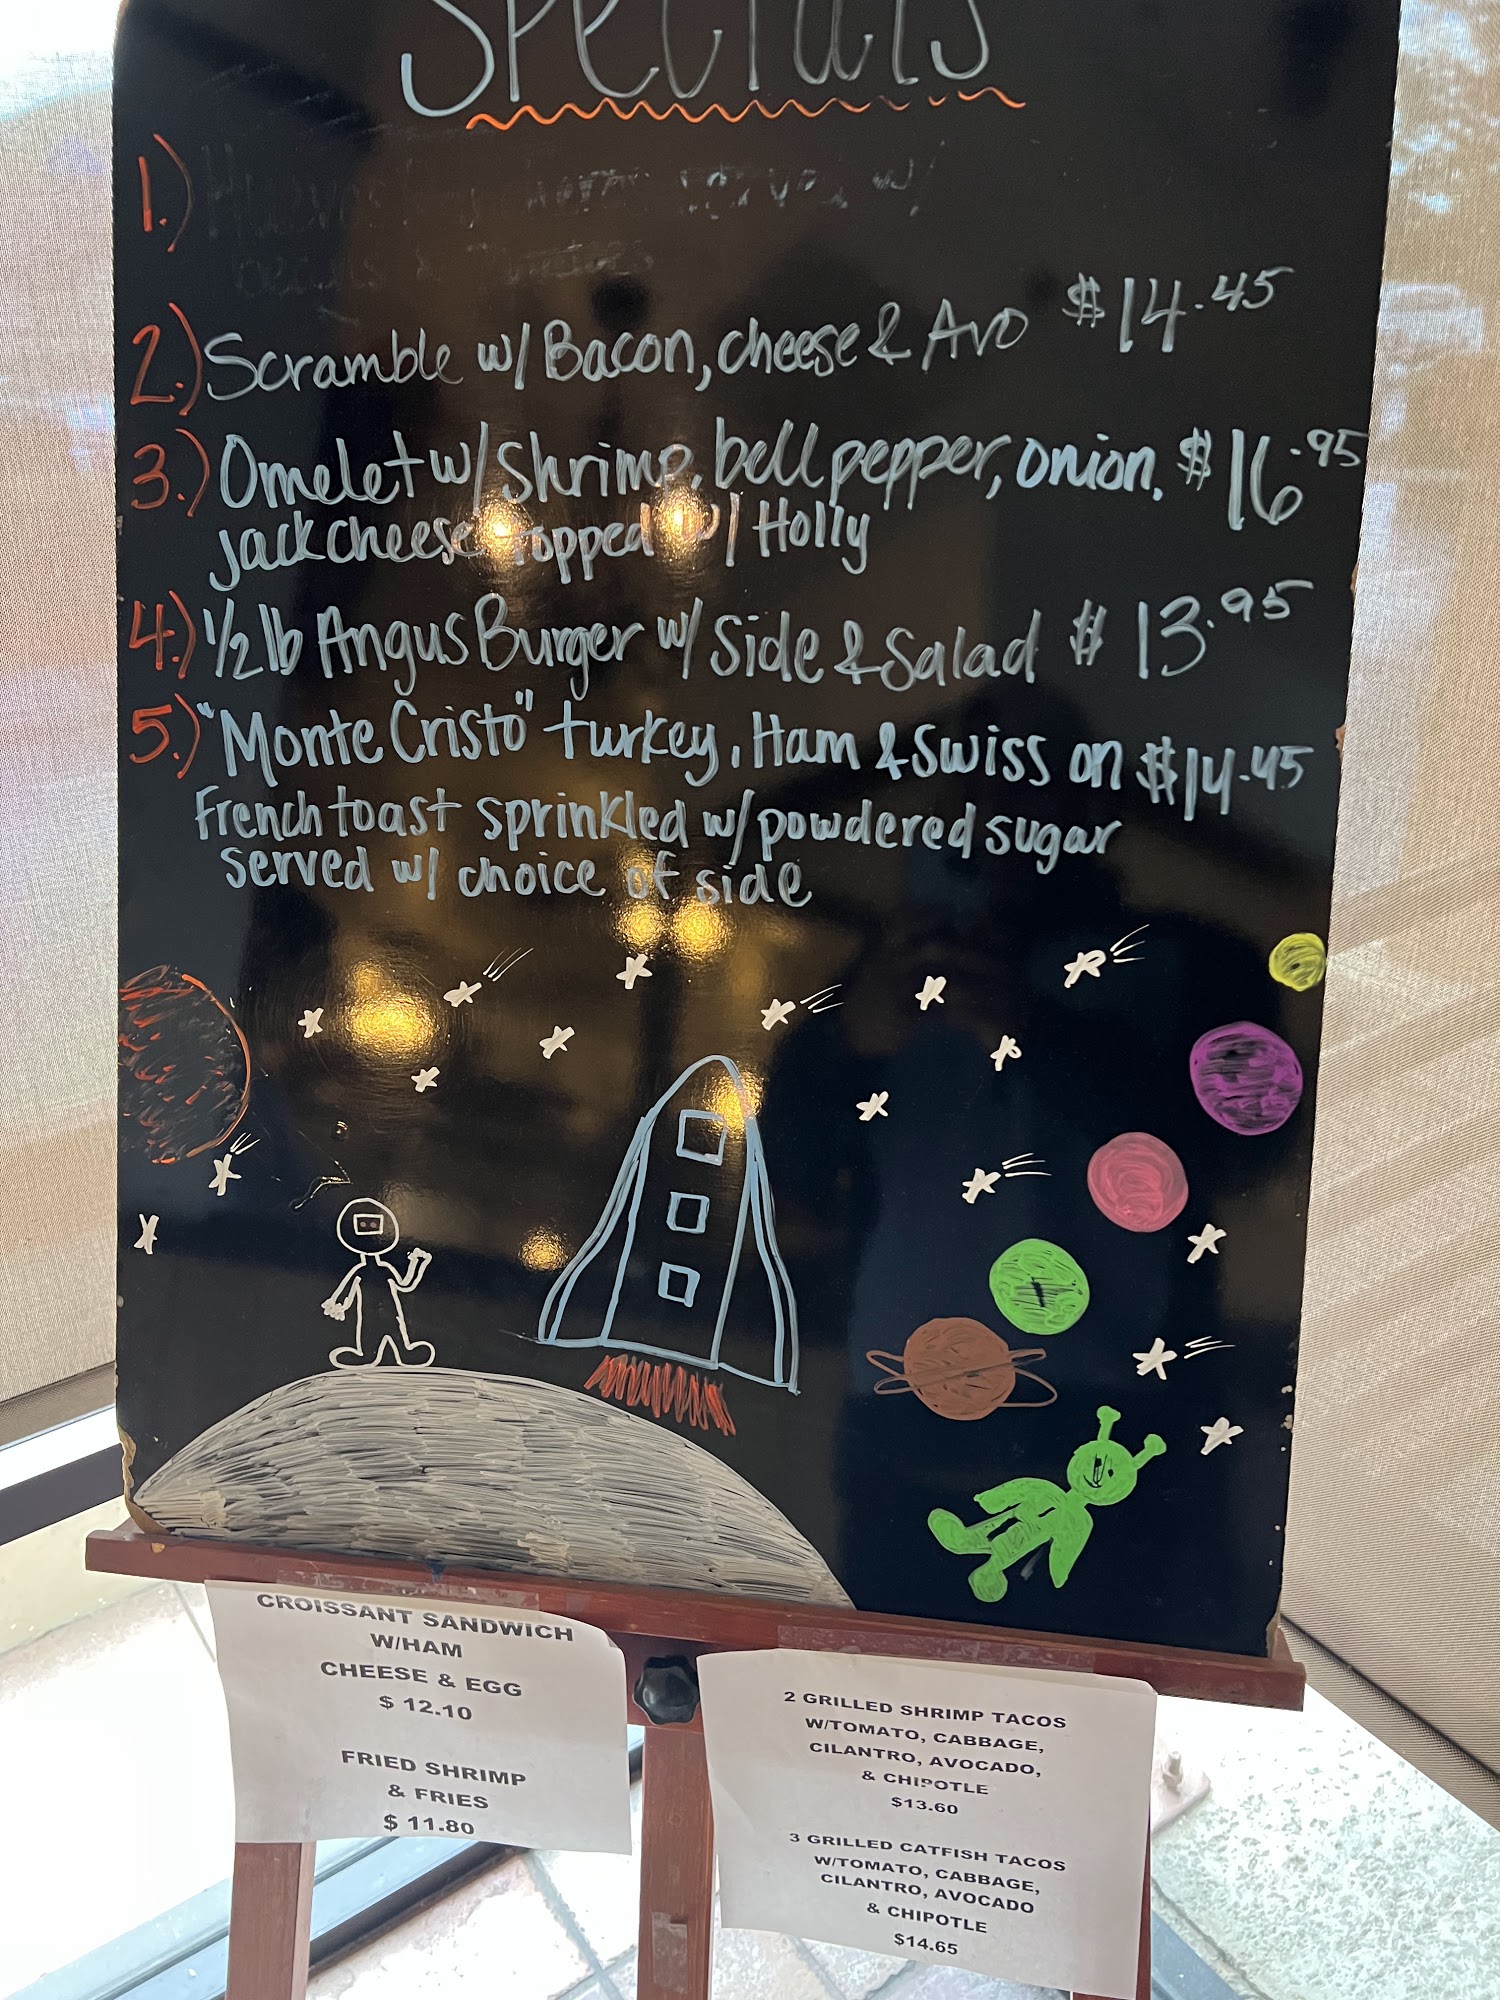 Specials
1.)
2.) Scramble w/ Bacon, cheese & Avo $14.45
3.) Omelet w/ shrimp, bell pepper, onion, $16.95
jack cheese topped w/ Holly
4.) 1/2 lb Angus Burger w/ Side & Salad $13.95
5.) "Monte Cristo" turkey, Ham & Swiss on $14.45
French toast sprinkled w/ powdered sugar
served w/ choice of side
CROISSANT SANDWICH
W/HAM
CHEESE & EGG
$ 12.10
FRIED SHRIMP
& FRIES
$ 11.80
2 GRILLED SHRIMP TACOS
W/TOMATO, CABBAGE,
CILANTRO, AVOCADO,
& CHIPOTLE
$13.60
3 GRILLED CATFISH TACOS
W/TOMATO, CABBAGE,
CILANTRO, AVOCADO
& CHIPOTLE
$14.65